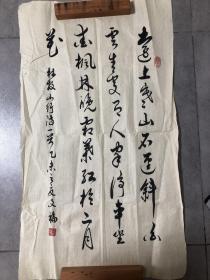 遠上寒山石徑斜白
雲生處有人家停車坐
愛楓林晚霜葉紅於二月
花
杜牧山行詩一首乙未